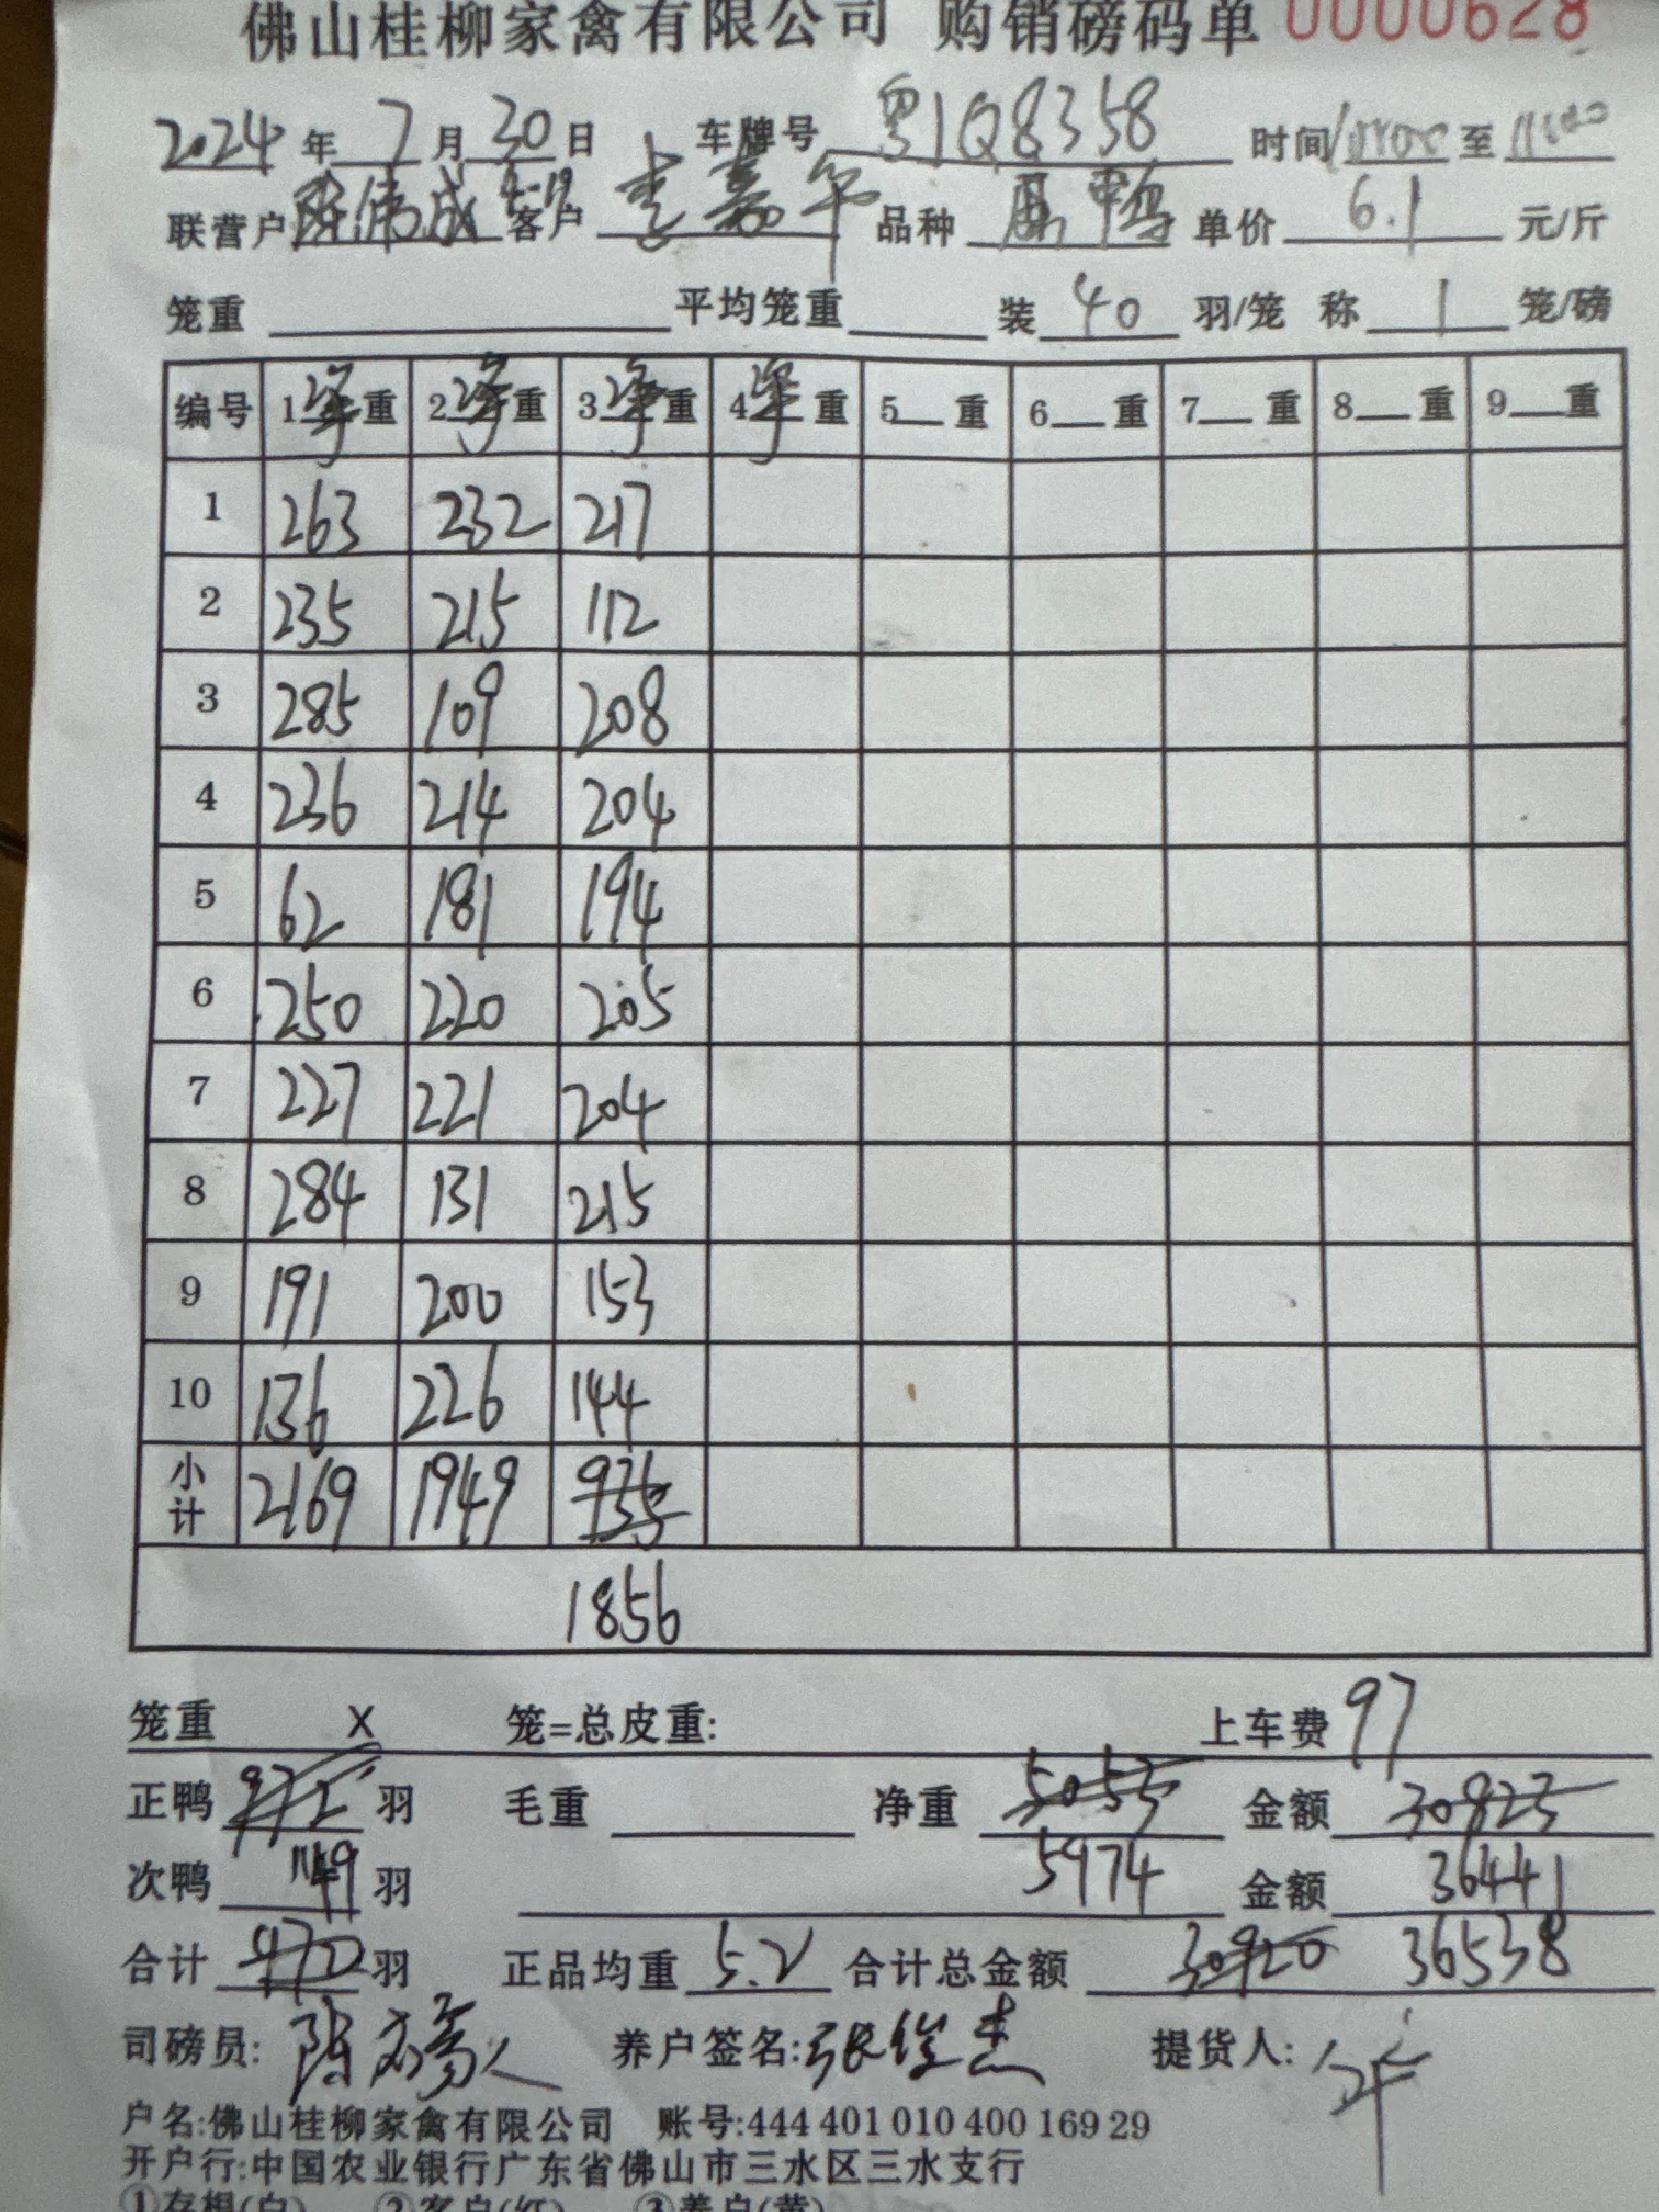 佛山桂柳家禽有限公司 购销磅码单 0000628
2024年7月30日 车牌号 粤JQ8358 时间 至
联营户 陈伟成 客户 嘉华 品种 鸭 单价 6.1 元/斤
笼重 平均笼重 装 40 羽/笼 称 1 笼/磅
编号 1净重 2净重 3净重 4净重 5重 6重 7重 8重 9重
1 263 232 217
2 235 215 112
3 285 109 208
4 236 214 204
5 62 181 194
6 250 220 205
7 227 221 204
8 284 131 215
9 191 200 153
10 136 226 144
小计 2169 1949 935
1856
笼重 X 笼=总皮重: 上车费 97
正鸭 972 羽 毛重 净重 5053 金额 30823
次鸭 1149 羽 5974 金额 36441
合计 972 羽 正品均重 5.2 合计总金额 30920 36538
司磅员: 陈 养户签名: 张俊杰 提货人: 华
户名:佛山桂柳家禽有限公司 账号:444 401 010 400 169 29
开户行:中国农业银行广东省佛山市三水区三水支行
①存根(白) ②客户(红) ③养户(黄)